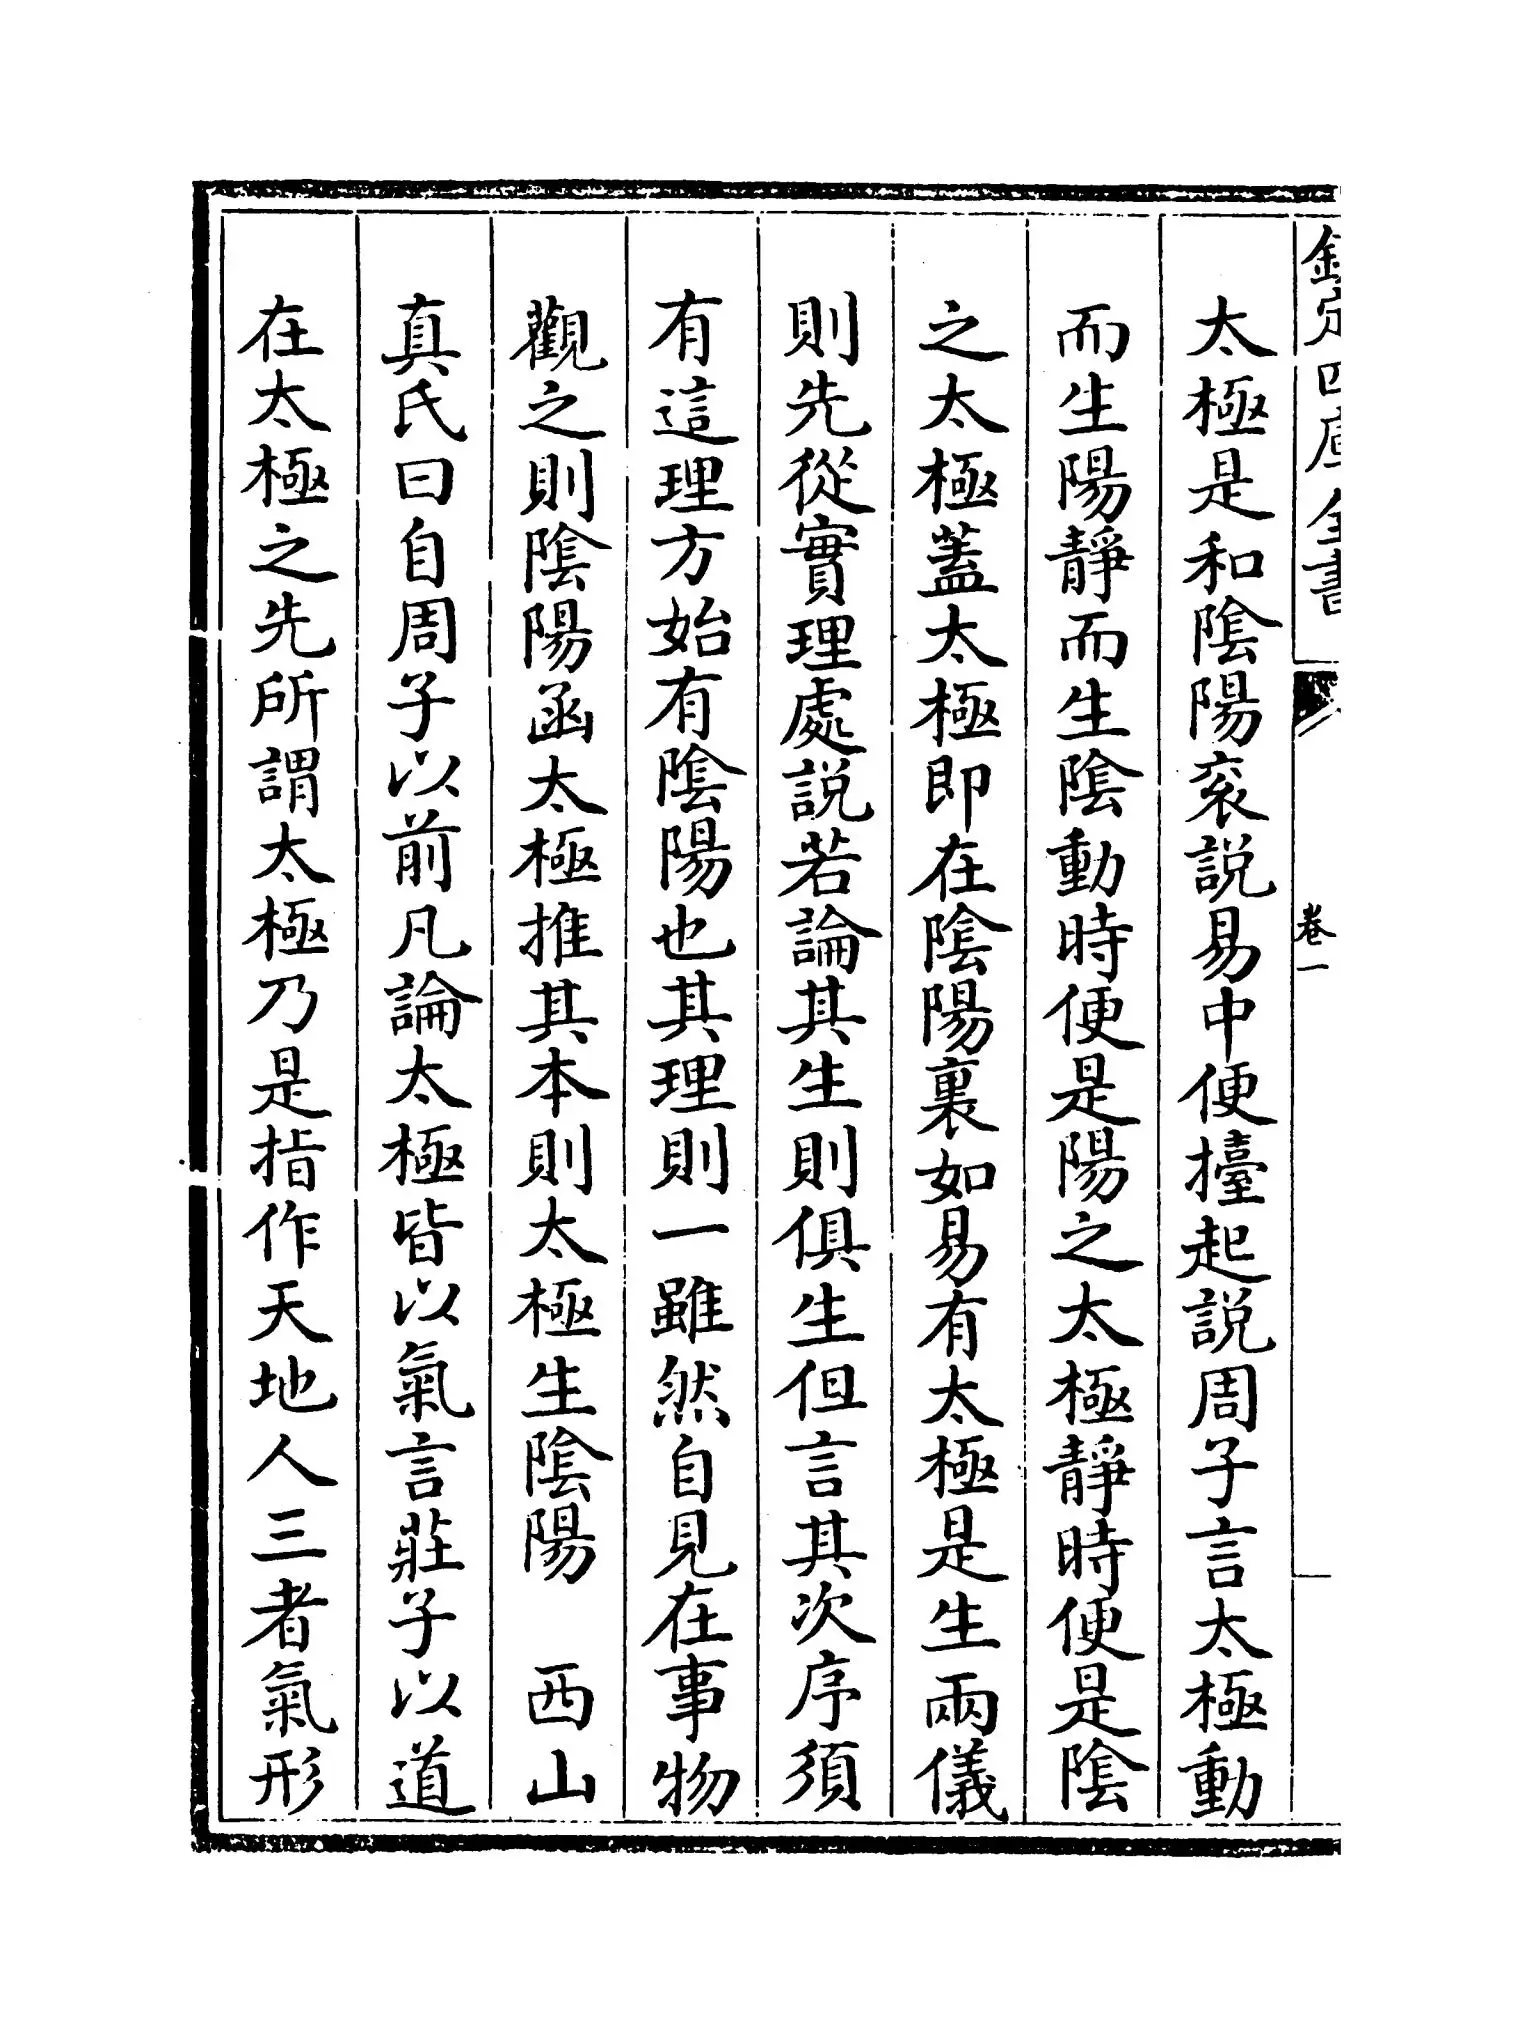 欽定四庫全書
卷一
太極是和陰陽衮説易中便擡起説周子言太極動
而生陽靜而生陰動時便是陽之太極靜時便是陰
之太極蓋太極即在陰陽裏如易有太極是生兩儀
則先從實理處説若論其生則俱生但言其次序須
有這理方始有陰陽也其理則一雖然自見在事物
觀之則陰陽函太極推其本則太極生陰陽　西山
真氏曰自周子以前凡論太極皆以氣言莊子以道
在太極之先所謂太極乃是指作天地人三者氣形